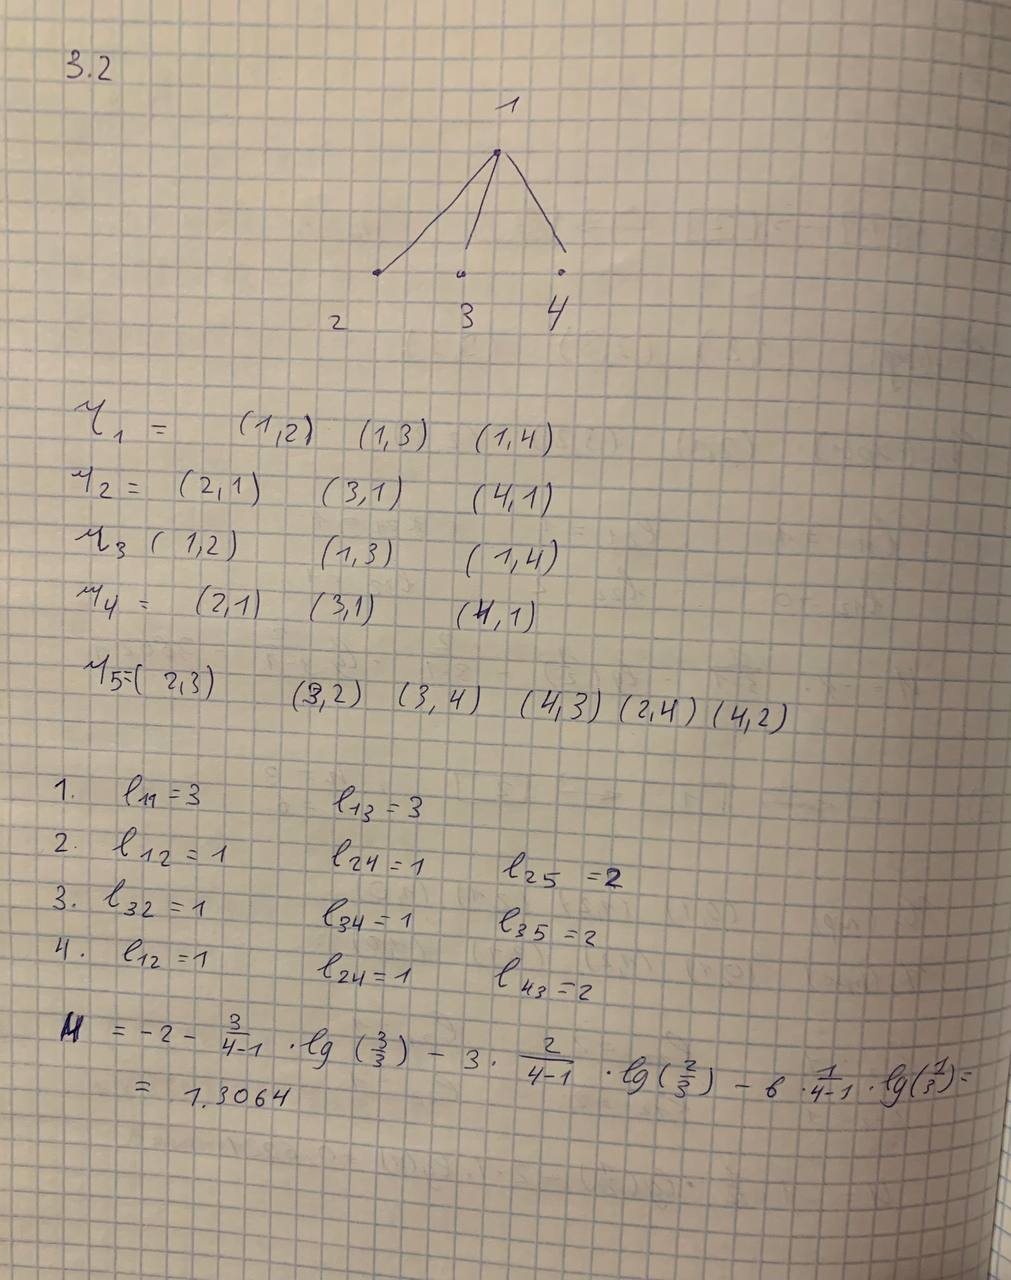 3.2
1
2 3 4
r₁ = (1,2) (1,3) (1,4)
r₂ = (2,1) (3,1) (4,1)
r₃ (1,2) (1,3) (1,4)
r₄ = (2,1) (3,1) (4,1)
r₅=(2,3) (3,2) (3,4) (4,3) (2,4) (4,2)
1. l₁₁ = 3 l₁₃ = 3
2. l₁₂ = 1 l₂₄ = 1 l₂₅ = 2
3. l₃₂ = 1 l₃₄ = 1 l₃₅ = 2
4. l₁₂ = 1 l₂₄ = 1 l₄₃ = 2
H = -2 - 3/(4-1) · lg (3/3) - 3 · 2/(4-1) · lg (2/3) - 6 · 1/(4-1) · lg (1/3) =
= 1.3064